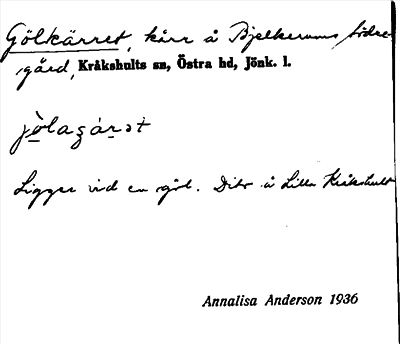 Gölkärret, kärr å Bjelkerums södre-
gård, Kråkshults sn, Östra hd, Jönk. l.
jò̱lagár̠ət
Ligger vid en göl. Dito å Lilla Kråkshult
Annalisa Anderson 1936